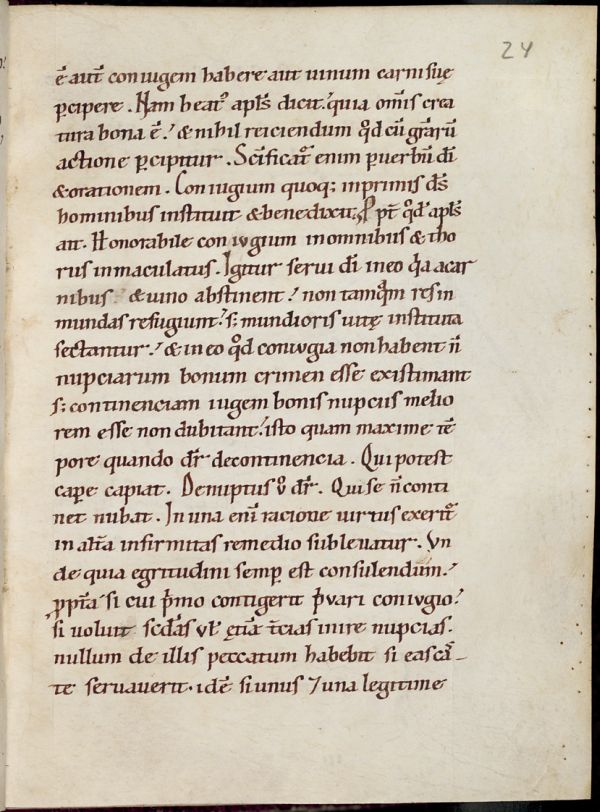 24
ē aut̄ coniugem habere aut uinum carnisuę
ꝑcipere. Nam beat᷒ apl̄s dicit. quia om̄is crea
tura bona ē. & nihil reiciendum qd̄ cū gr̄arū
actione ꝑcipitur. Sc̄ificat᷒ enim ꝑ uerbū dī
& orationem. Coniugium quoq; inprimis ds̄
hominibus instituit & benedixit. ꝓpt̄ qd̄ apl̄s
ait. Honorabile coniugium in omnibus & tho
rus inmaculatus. Igitur serui dī in eo qd̄ a car
nibus & uino abstinent. non tamquā res in
mundas refugiunt. s; mundioris uitę instituta
sectantur. & in eo qd̄ coniugia non habent n̄
nupciarum bonum crimen esse existimant
s; continenciam iugem bonis nupciis melio
rem esse non dubitant. isto quam maxime tē
pore quando dr̄ de continencia. Qui potest
capere capiat. De nuptus ū dr̄. Qui se n̄ conti
net nubat. In una eni racione uirtus exerit᷒
in alt̄a infirmitas remedio subleuatur. Vn
de quia egritudini semꝑ est consulendum.
ꝓpt̄a si cui p̄mo contigerit p̄uari coniugio.
si uoluit scd̄as ul̄ etiā t̄cias inire nupcias.
nullum de illis peccatum habebit si eas cā
te seruauerit. idē si unus ⁊ una legitime